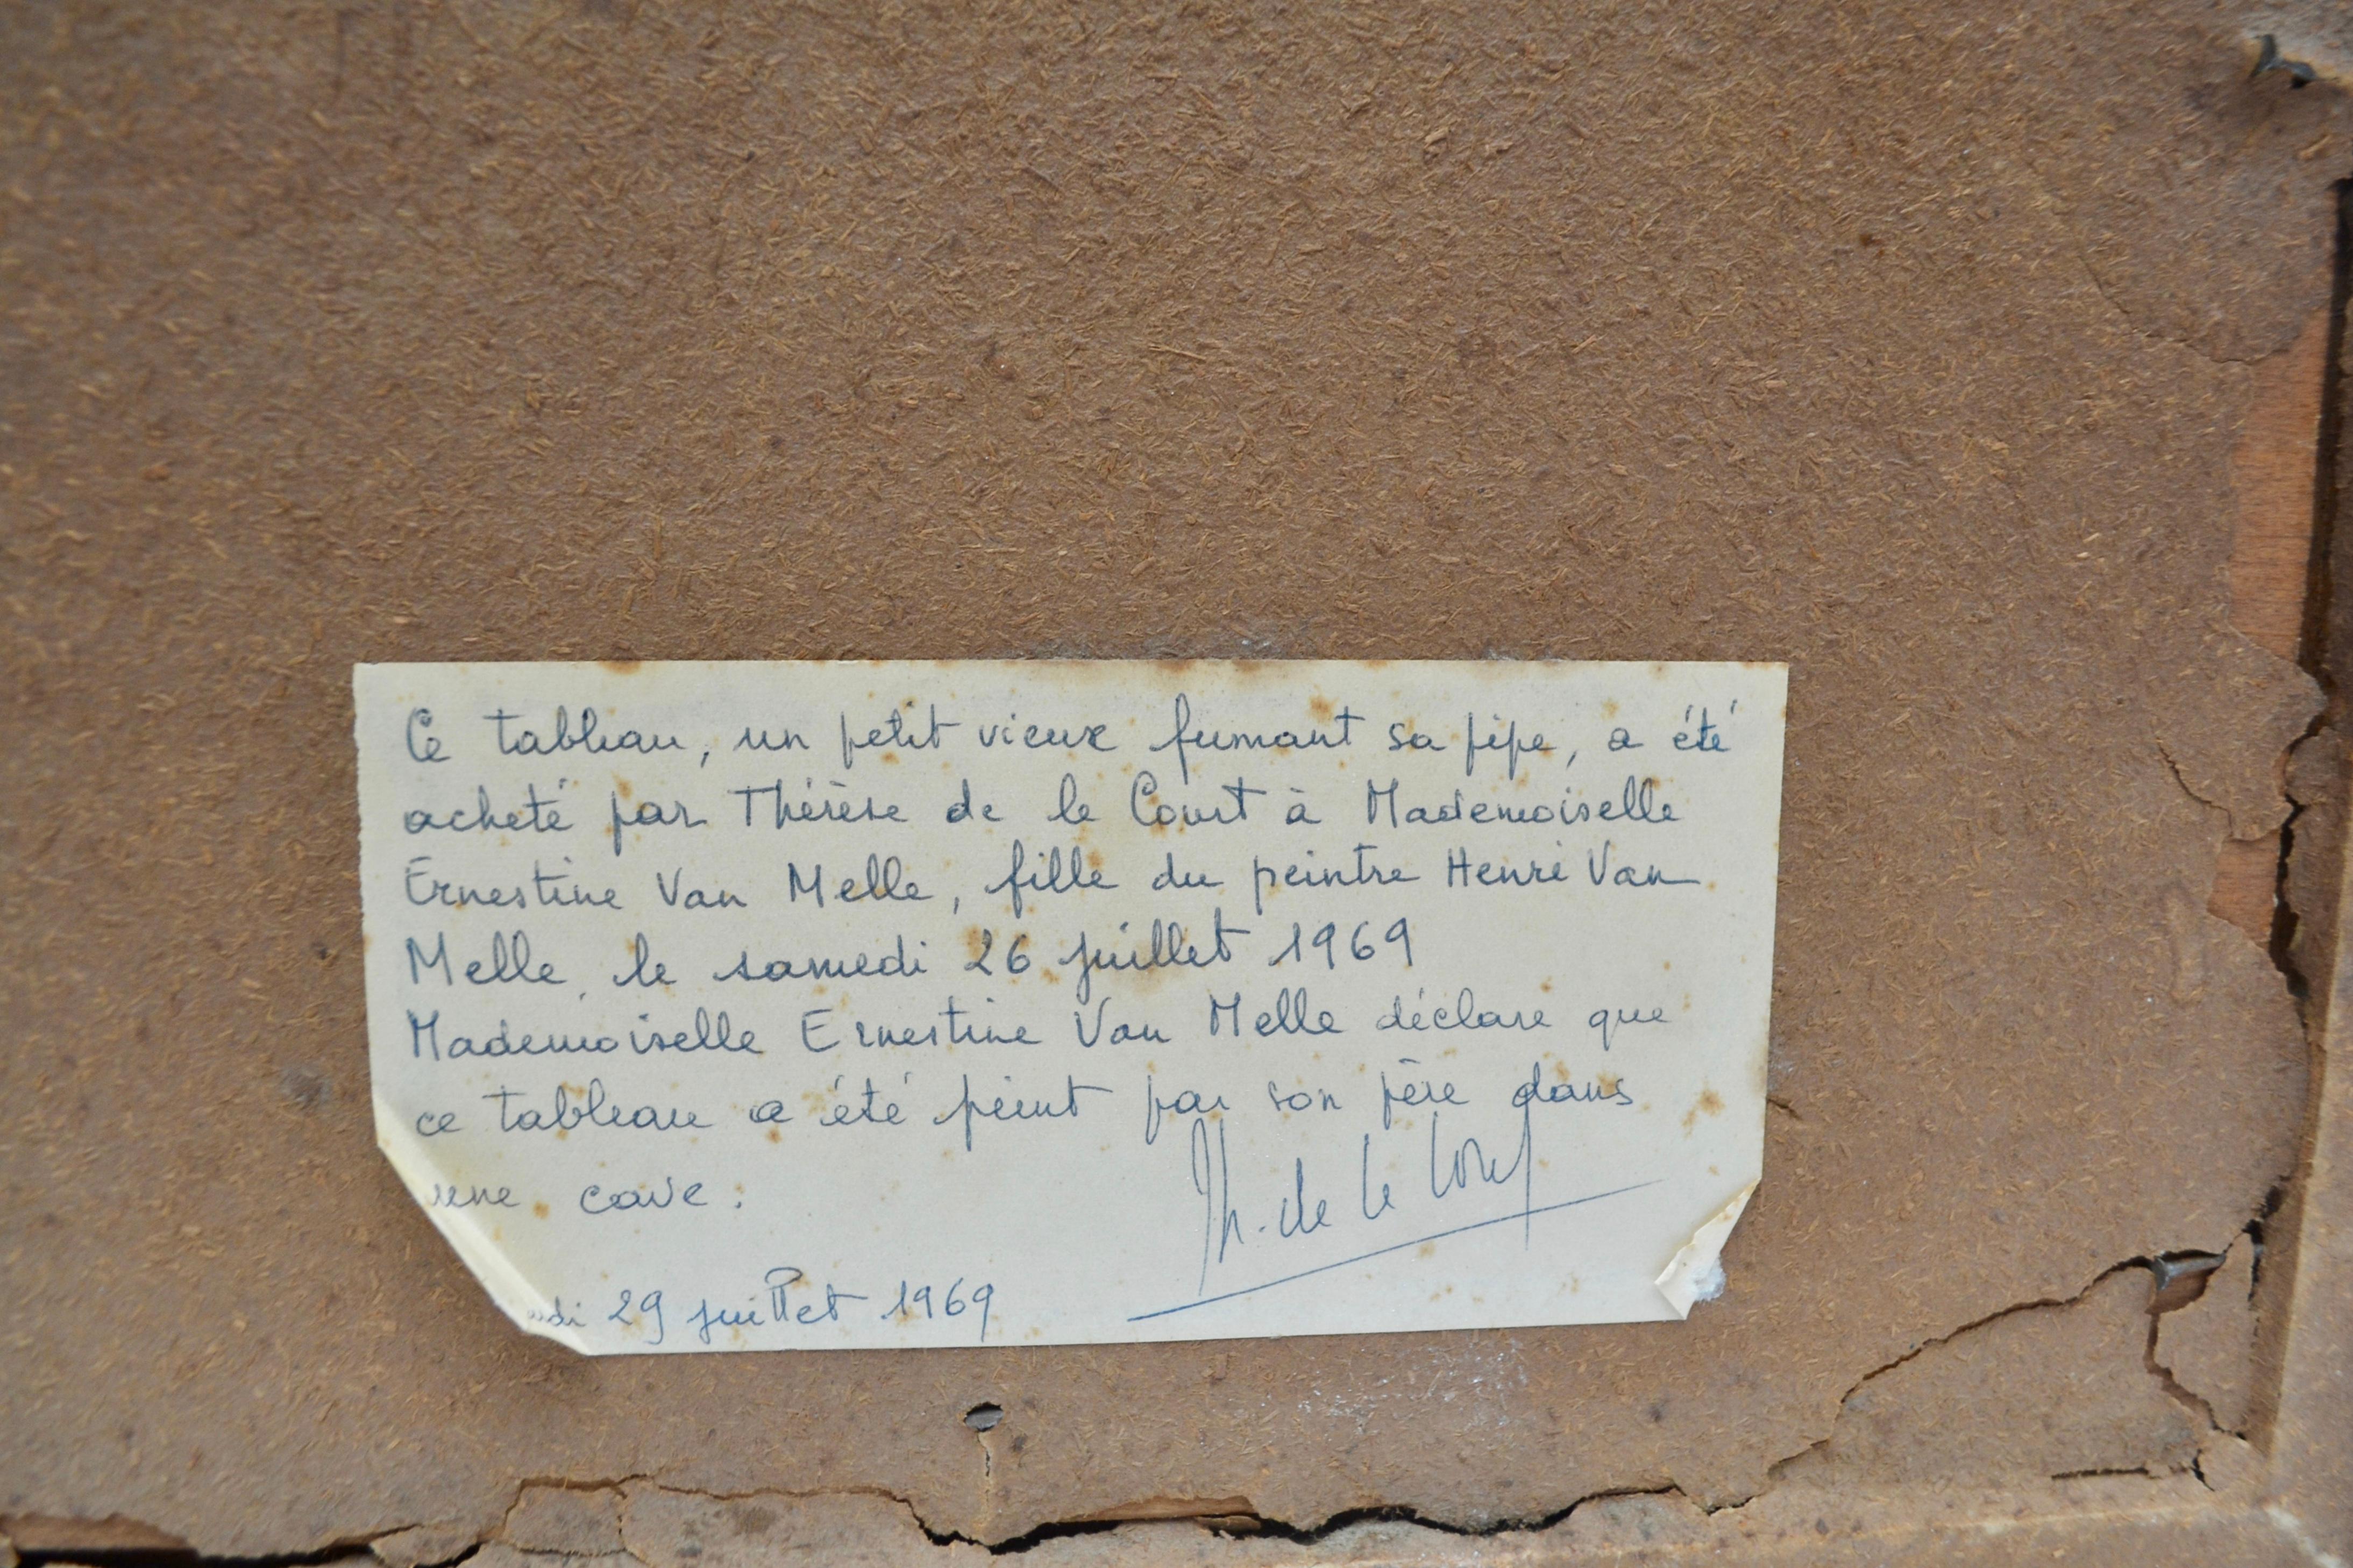 Ce tableau, un petit vieux fumant sa pipe, a été
acheté par Thérèse de le Court à Mademoiselle
Ernestine Van Melle, fille du peintre Henri Van
Melle, le samedi 26 juillet 1969
Mademoiselle Ernestine Van Melle déclare que
ce tableau a été peint par son père dans
une cave.
Th. de le Court
di 29 juillet 1969